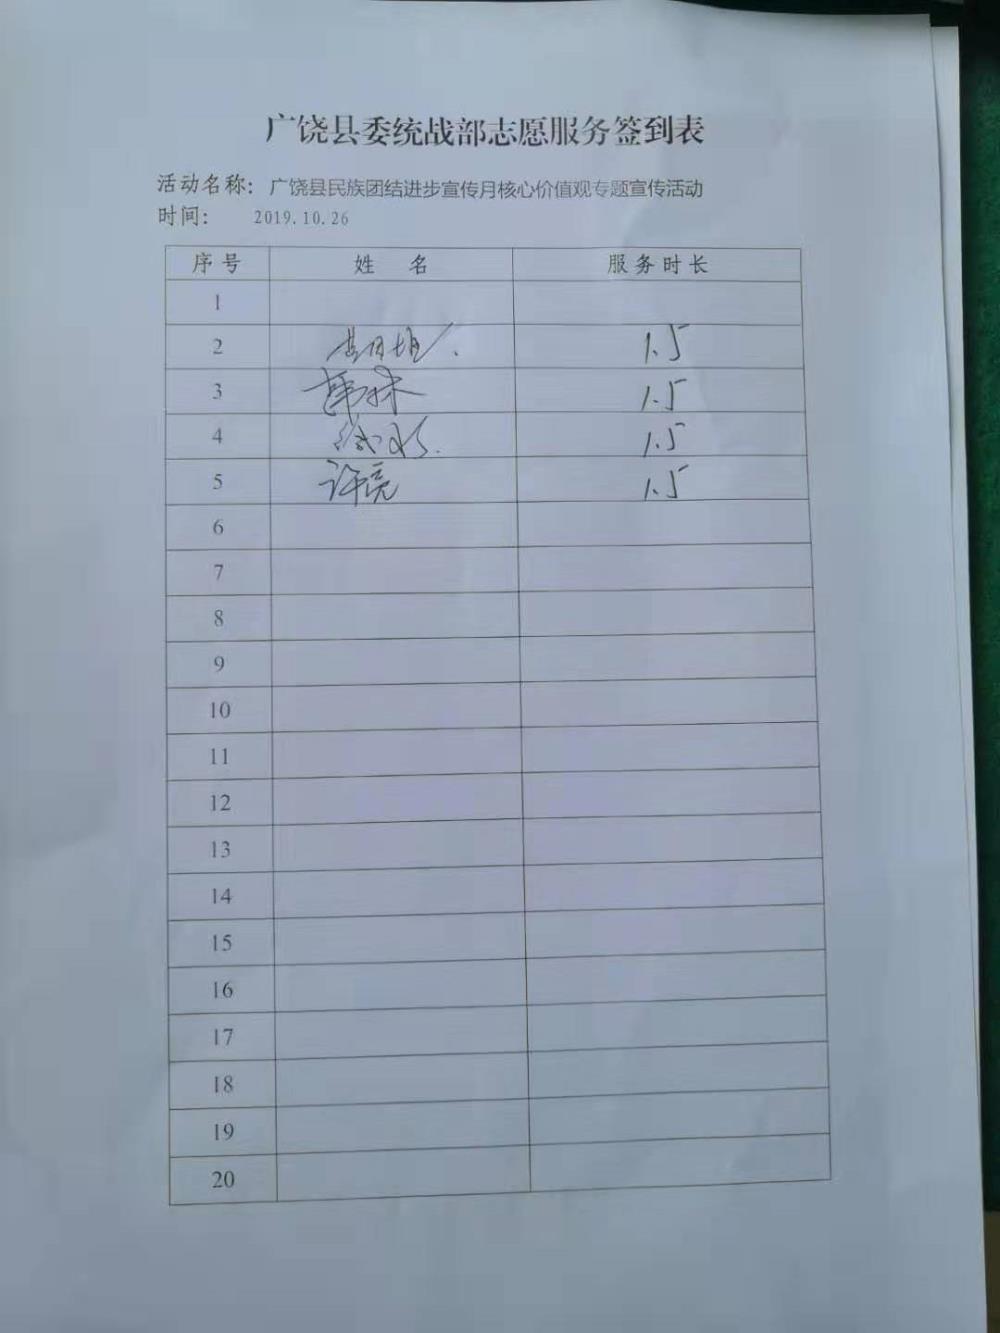 广饶县委统战部志愿服务签到表
活动名称： 广饶县民族团结进步宣传月核心价值观专题宣传活动
时间： 2019.10.26
序号 姓 名 服务时长
1
2 1.5
3 1.5
4 1.5
5 许亮 1.5
6
7
8
9
10
11
12
13
14
15
16
17
18
19
20